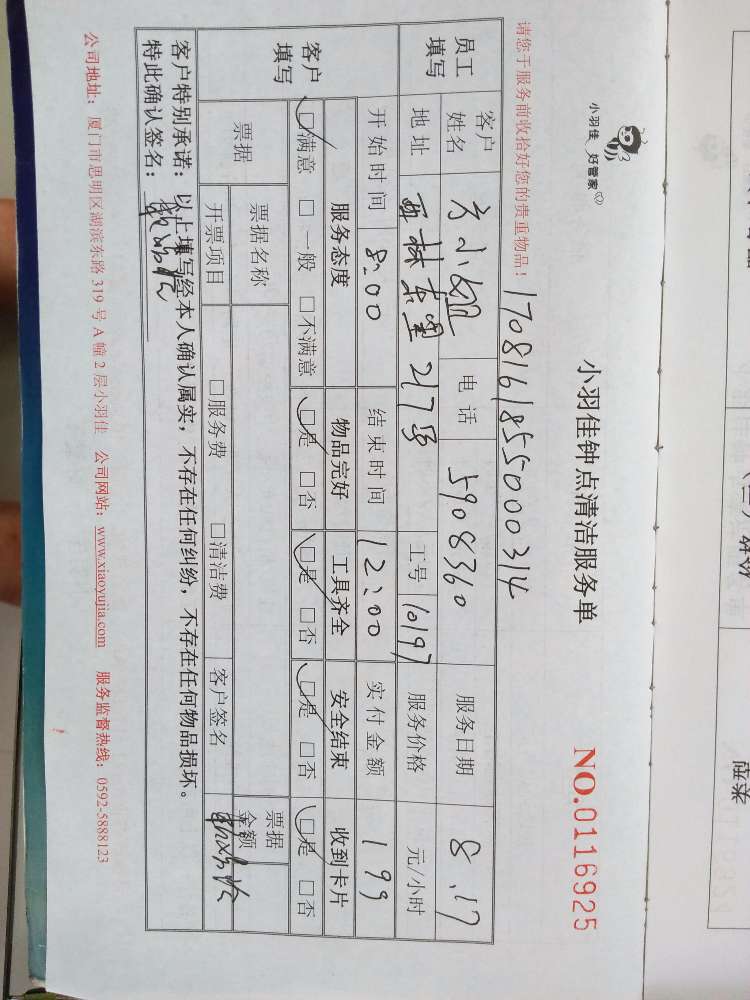 小羽佳 好管家
小羽佳钟点清洁服务单
NO.0116925
请您于服务前收拾好您的贵重物品！
170816185500314
员工填写 客户姓名 方小姐 电话 5908360 服务日期 8.17
地址 西林东里 217号 工号 10197 服务价格 元/小时
开始时间 8:00 结束时间 12:00 实付金额 199
客户填写 服务态度 物品完好 工具齐全 安全结束 收到卡片
☑满意 □一般 □不满意 ☑是 □否 ☑是 □否 ☑是 □否 ☑是 □否
票据 票据名称 票据金额
开票项目 □服务费 □清洁费 客户签名
客户特别承诺：以上填写经本人确认属实，不存在任何纠纷，不存在任何物品损坏。
特此确认签名：
公司地址：厦门市思明区湖滨东路 319 号 A 幢 2 层小羽佳 公司网站：www.xiaoyujia.com 服务监督热线：0592-5888123